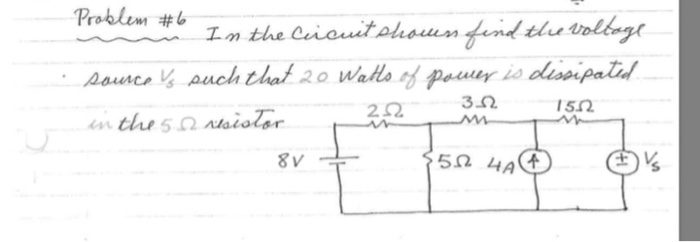 Problem #6
In the Circuit shown find the voltage
source Vs such that 20 Watts of power is dissipated
in the 5Ω resistor
2Ω 3Ω 15Ω
8V 5Ω 4A Vs